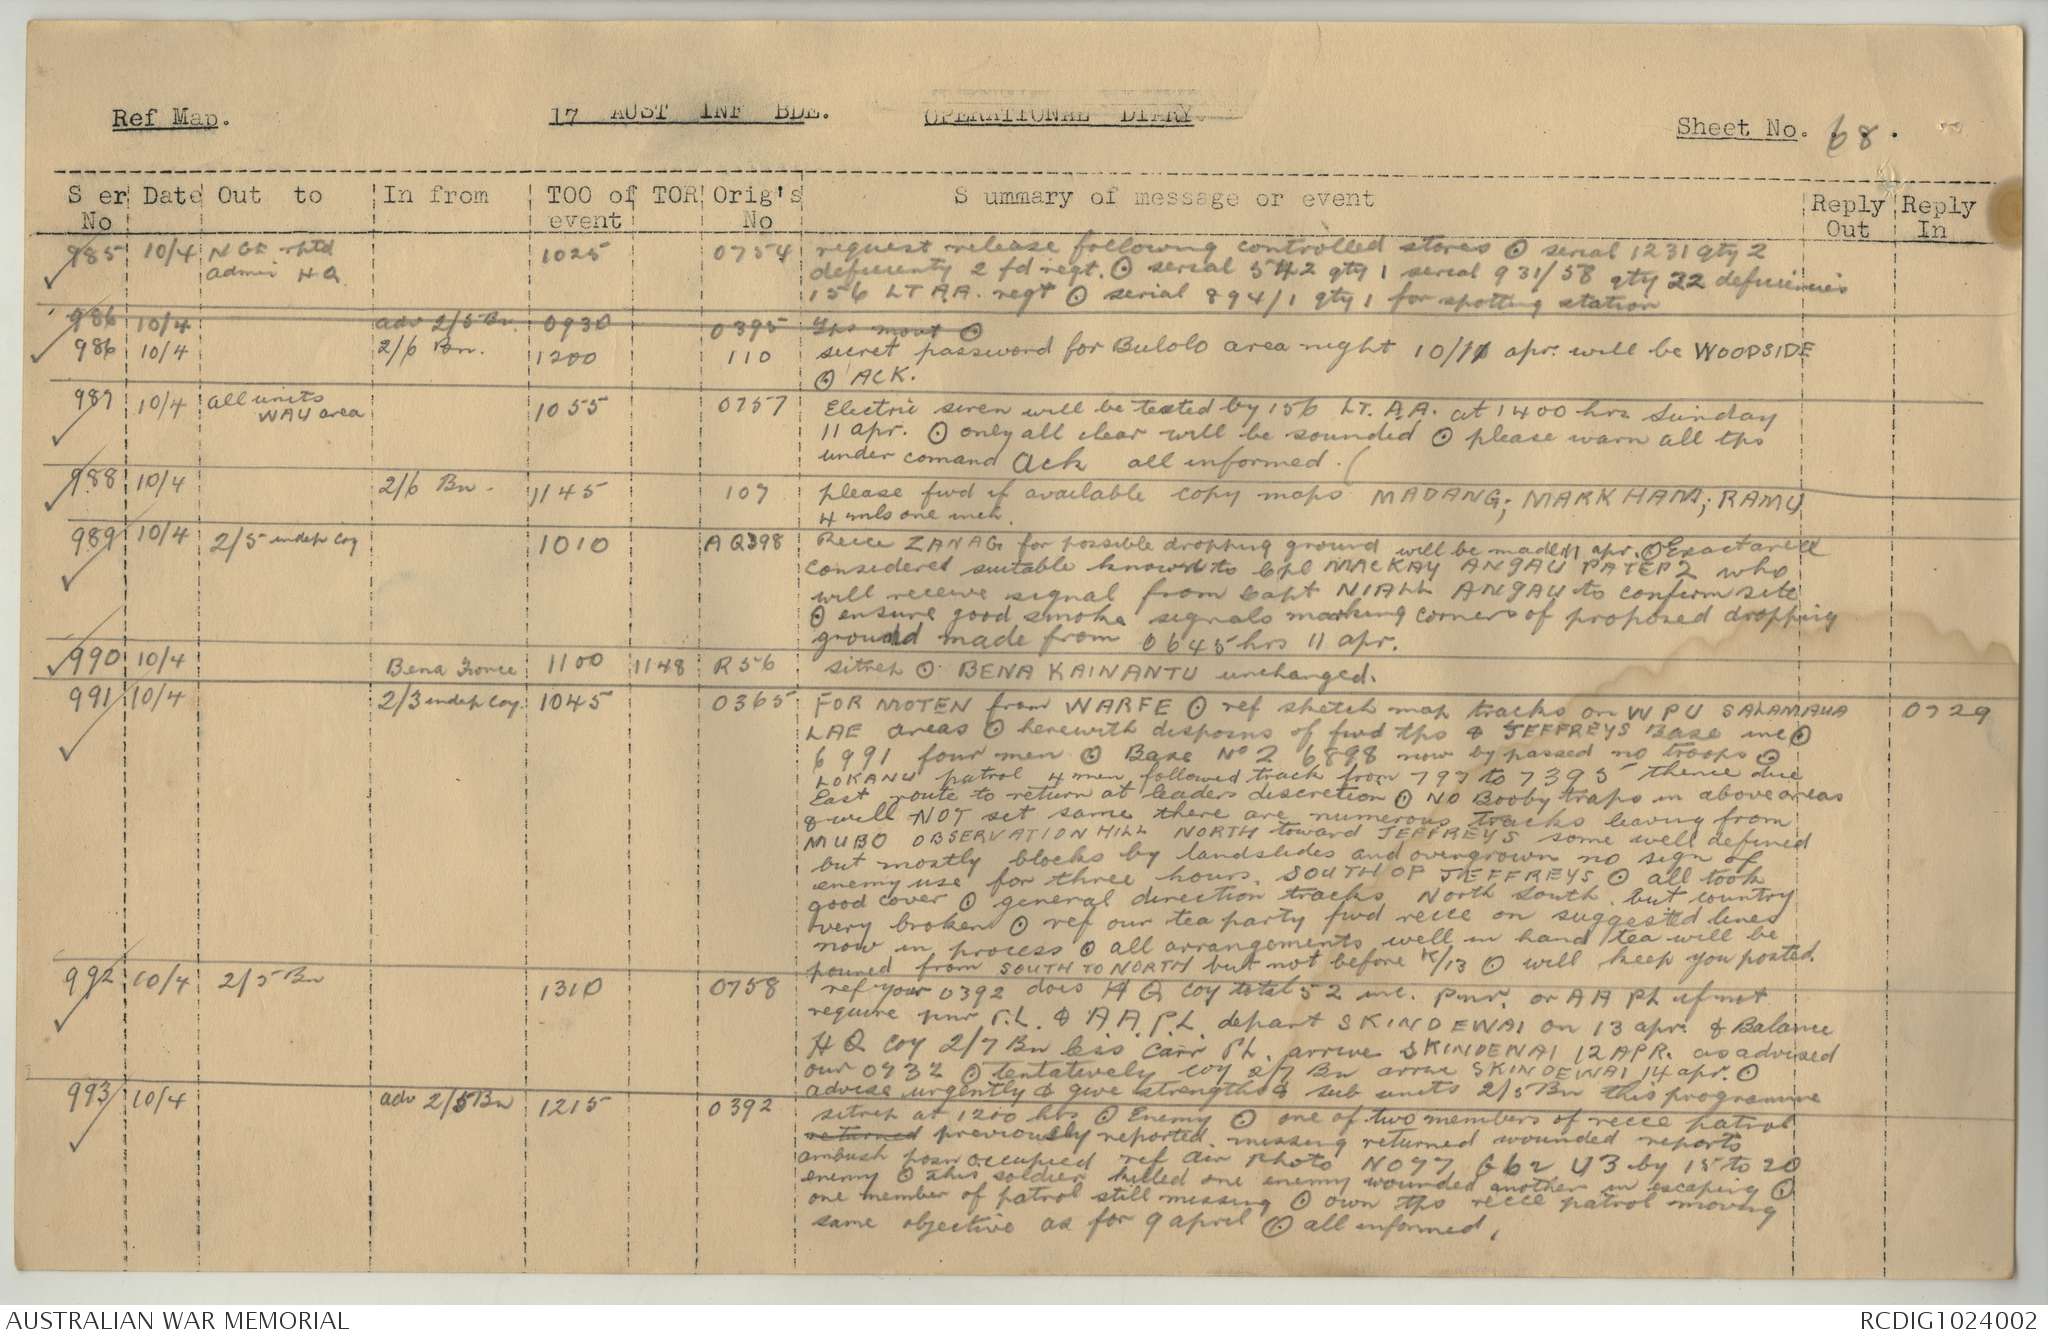 Ref Map. 17 AUST INF BDE. OPERATIONAL DIARY. Sheet No. 68.
S er Date Out to In from TOO of TOR Orig's S ummary of message or event Reply Reply
No event No Out In
985 10/4 NGF rptd 1025 0754 request release following controlled stores ⊙ serial 1231 qty 2
admin HQ deficienty 2 fd regt. ⊙ serial 542 qty 1 serial 931/58 qty 22 deficiencies
156 LT A.A. regt ⊙ serial 894/1 qty 1 for spotting station
986 10/4 adv 2/5 Bn. 0930 0395 Tps mout ⊙
986 10/4 2/6 Bn. 1200 110 secret password for Bulolo area night 10/11 apr. will be WOODSIDE
⊙ ACK.
987 10/4 all units 1055 0757 Electric siren will be tested by 156 LT. A.A. at 1400 hrs Sunday
WAU area 11 apr. ⊙ only all clear will be sounded ⊙ please warn all tps
under comand Ack all informed. (
988 10/4 2/6 Bn. 1145 107 please fwd if available copy maps MADANG; MARKHAM; RAMU
4 mls one inch.
989 10/4 2/5 indep Coy 1010 AQ398 Recce ZANAG for possible dropping ground will be made 11 apr. ⊙ Exact area
considered suitable known to Cpl MACKAY ANGAU PATEP 2 who
will receive signal from Capt NIALL ANGAU to confirm site
⊙ ensure good smoke signals marking corners of proposed dropping
ground made from 0645 hrs 11 apr.
990 10/4 Bena Force 1100 1148 R56 sitrep ⊙ BENA KAINANTU unchanged.
991 10/4 2/3 indep Coy. 1045 0365 FOR MOTEN from WARFE ⊙ ref sketch map tracks on WPU SALAMAUA 0729
LAE areas ⊙ herewith disposns of fwd tps & JEFFREYS Base inc ⊙
6991 four men ⊙ Base No 2 6898 now by passed no troops ⊙
LOKANU patrol 4 men followed track from 797 to 7395 thence due
East route to return at leaders discretion ⊙ NO Booby traps in above areas
& will NOT set same there are numerous tracks leaving from
MUBO OBSERVATION HILL NORTH toward JEFFREYS some well defined
but mostly blocks by landslides and overgrown no sign of
enemy use for three hours. SOUTH OF JEFFREYS ⊙ all took
good cover ⊙ general direction tracks North South. but country
very broken ⊙ ref our tea party fwd recce on suggested lines
now in process ⊙ all arrangements well in hand tea will be
poured from SOUTH TO NORTH but not before K/13 ⊙ will keep you posted.
992 10/4 2/5 Bn 1310 0758 ref your 0392 does HQ coy total 52 inc. pnr. or AA PL if not
require pnr P.L. & A.A. P.L. depart SKINDEWAI on 13 apr. & Balance
HQ coy 2/7 Bn less Carr PL. arrive SKINDEWAI 12 APR. as advised
our 0732 ⊙ tentatively coy 2/7 Bn arrive SKINDEWAI 14 apr. ⊙
advise urgently & give strengths & sub units 2/5 Bn this programme
993 10/4 adv 2/5 Bn 1215 0392 sitrep at 1200 hrs ⊙ Enemy ⊙ one of two members of recce patrol
returned previously reported. missing returned wounded reports
ambush posn occupied ref air Photo NO 77 G62 U3 by 15 to 20
enemy ⊙ This soldier killed one enemy wounded another in escaping ⊙
one member of patrol still missing ⊙ own tps recce patrol moving
same objective as for 9 april ⊙ all informed.
AUSTRALIAN WAR MEMORIAL RCDIG1024002